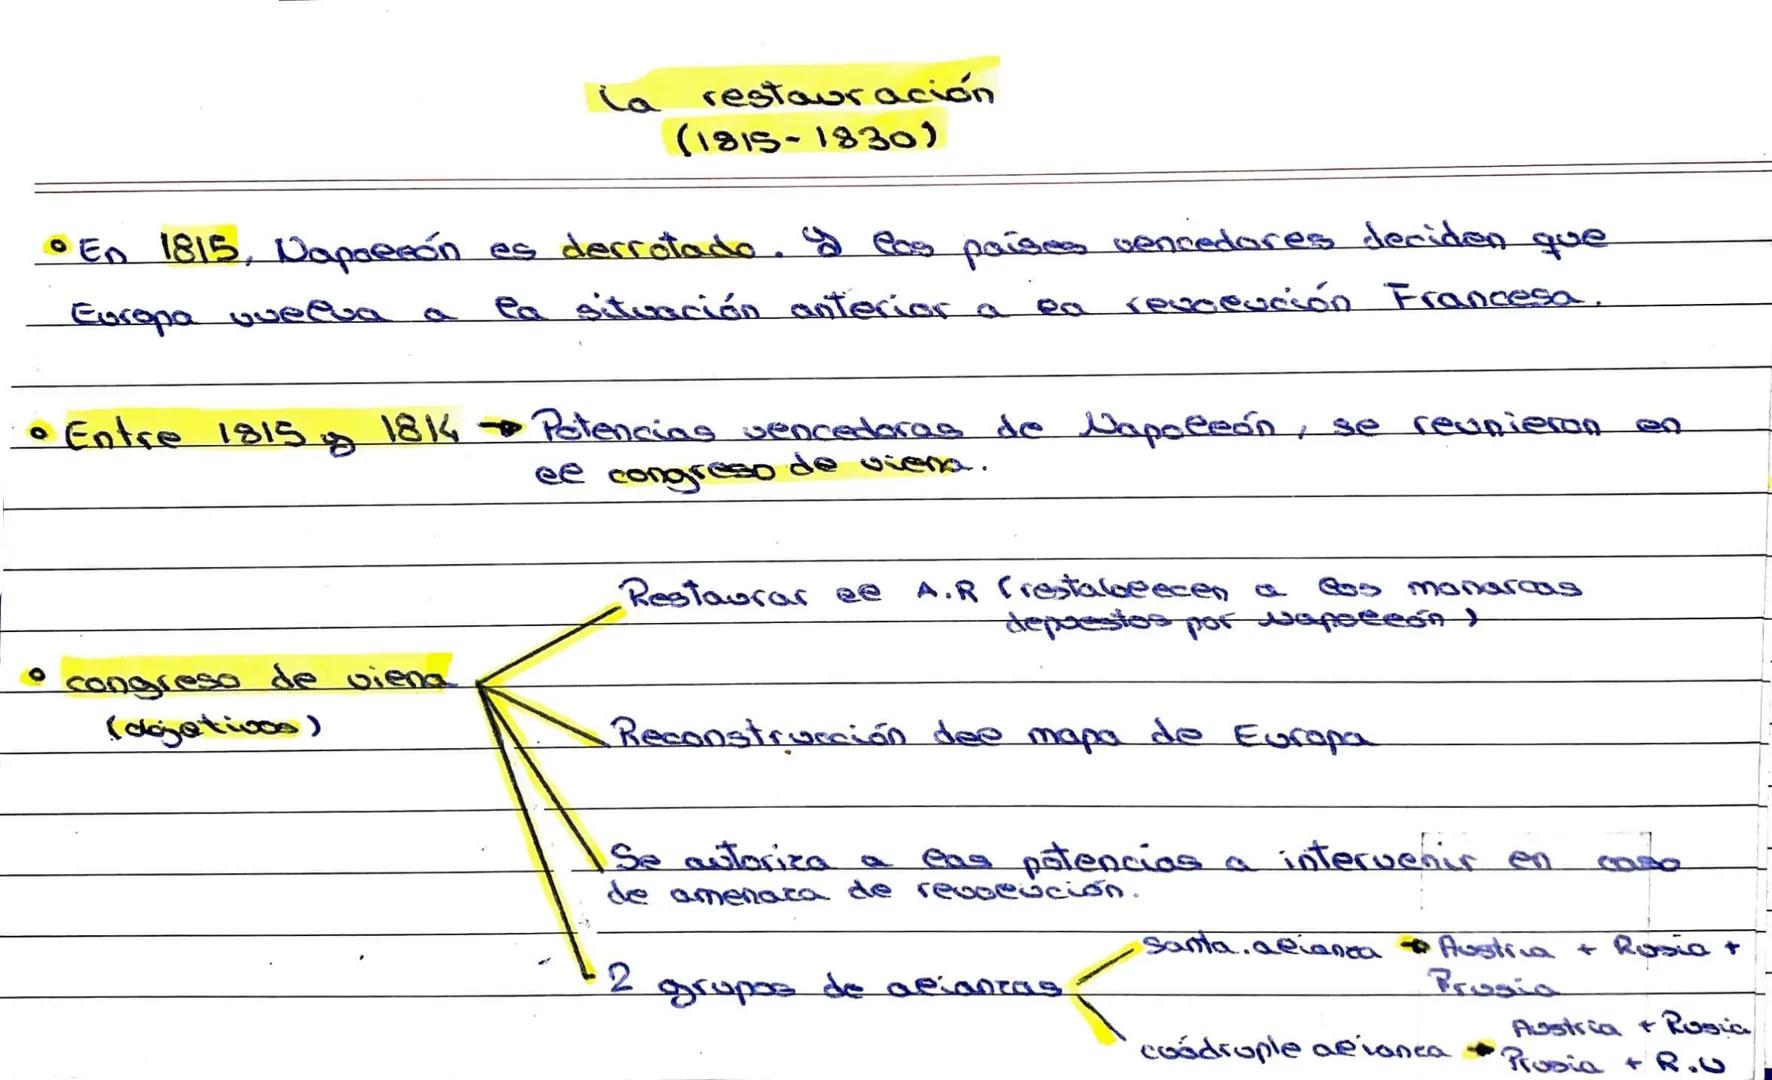 La restauración
(1815-1830)
• En 1815, Napoleón es derrotado. y los países vencedores deciden que
Europa vuelva a la situación anterior a la revolución Francesa.
• Entre 1815 y 1814 → Potencias vencedoras de Napoleón, se reunieron en
el congreso de viena.
Restaurar el A.R (restablecen a los monarcas
depuestos por Napoleón)
• congreso de viena
(objetivos)
Reconstrucción del mapa de Europa
Se autoriza a las potencias a intervenir en caso
de amenaza de revolución.
2 grupos de alianzas
Santa. alianza → Austria + Rusia +
Prusia
cuádruple alianza → Austria + Rusia
Prusia + R.U